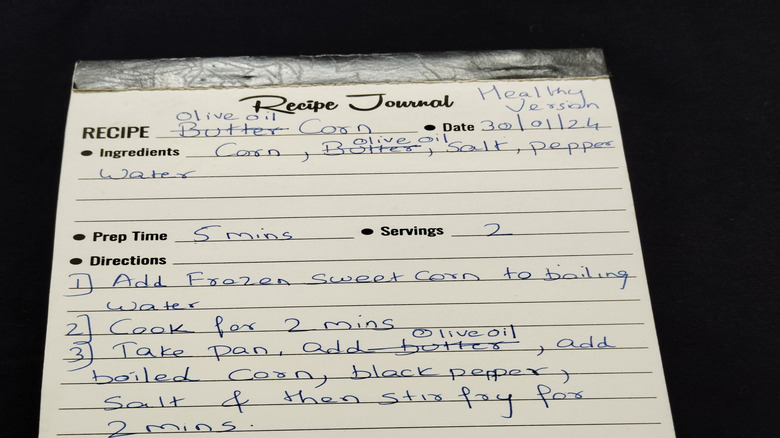 Recipe Journal
Healthy
Version
Olive oil
RECIPE Butter Corn
Date 30/01/24
Ingredients Corn, Butter, Salt, pepper
olive oil
Water
Prep Time 5 mins
Servings 2
Directions
1] Add Frozen sweet corn to boiling
water
2] Cook for 2 mins
Olive oil
3] Take pan, add butter, add
boiled corn, black pepper,
Salt & then stir fry for
2 mins.